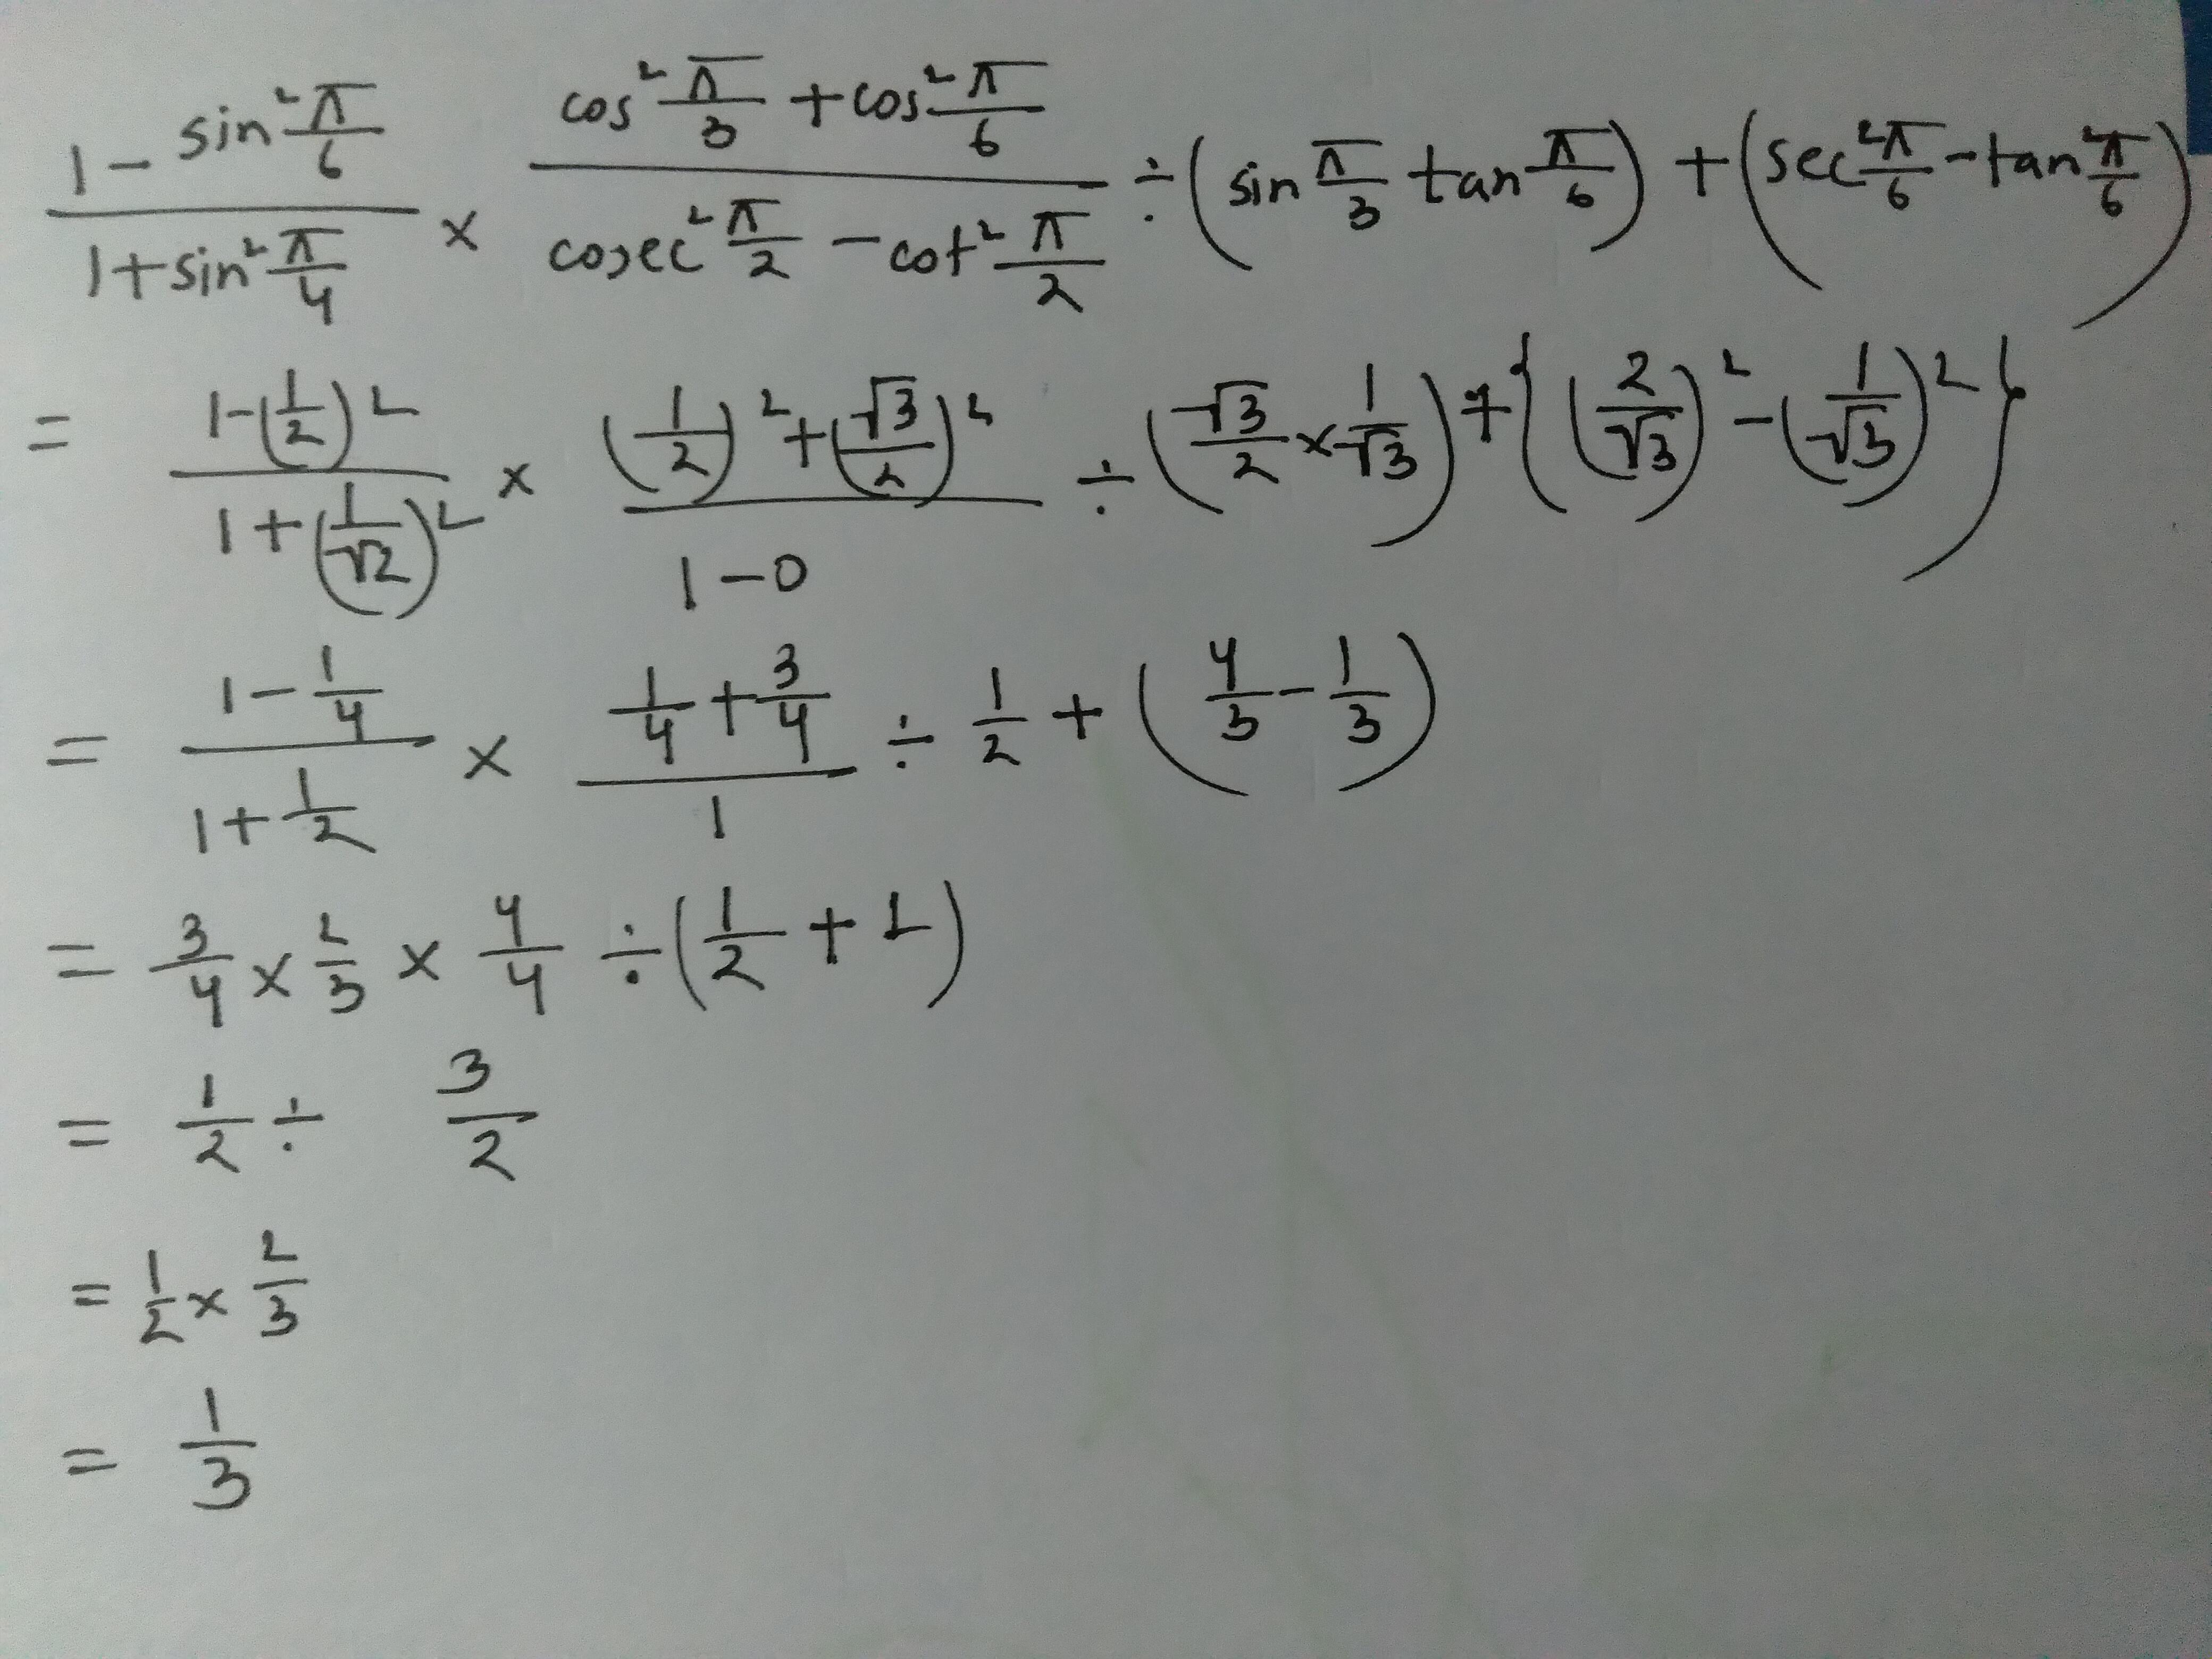 (1 - sin² π/6)/(1 + sin² π/4) × (cos² π/3 + cos² π/6)/(cosec² π/2 - cot² π/2) ÷ (sin π/3 tan π/6) + (sec² π/6 - tan² π/6)
= (1 - (1/2)²)/(1 + (1/√2)²) × ((1/2)² + (√3/2)²)/(1 - 0) ÷ (√3/2 × 1/√3) + {(2/√3)² - (1/√3)²}
= (1 - 1/4)/(1 + 1/2) × (1/4 + 3/4)/1 ÷ 1/2 + (4/3 - 1/3)
= 3/4 × 2/3 × 4/4 ÷ (1/2 + 1)
= 1/2 ÷ 3/2
= 1/2 × 2/3
= 1/3